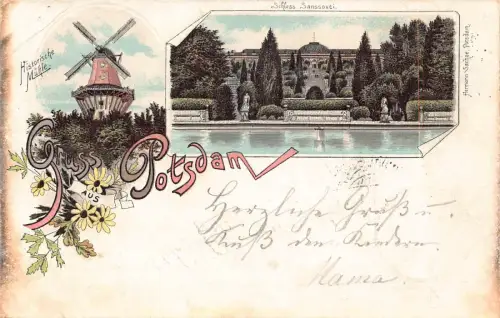 Schloss Sanssouci.
Historische
Mühle.
Gruss
aus
Potsdam
Herzliche Gruß u.
Kuß den Kindern.
Mama.